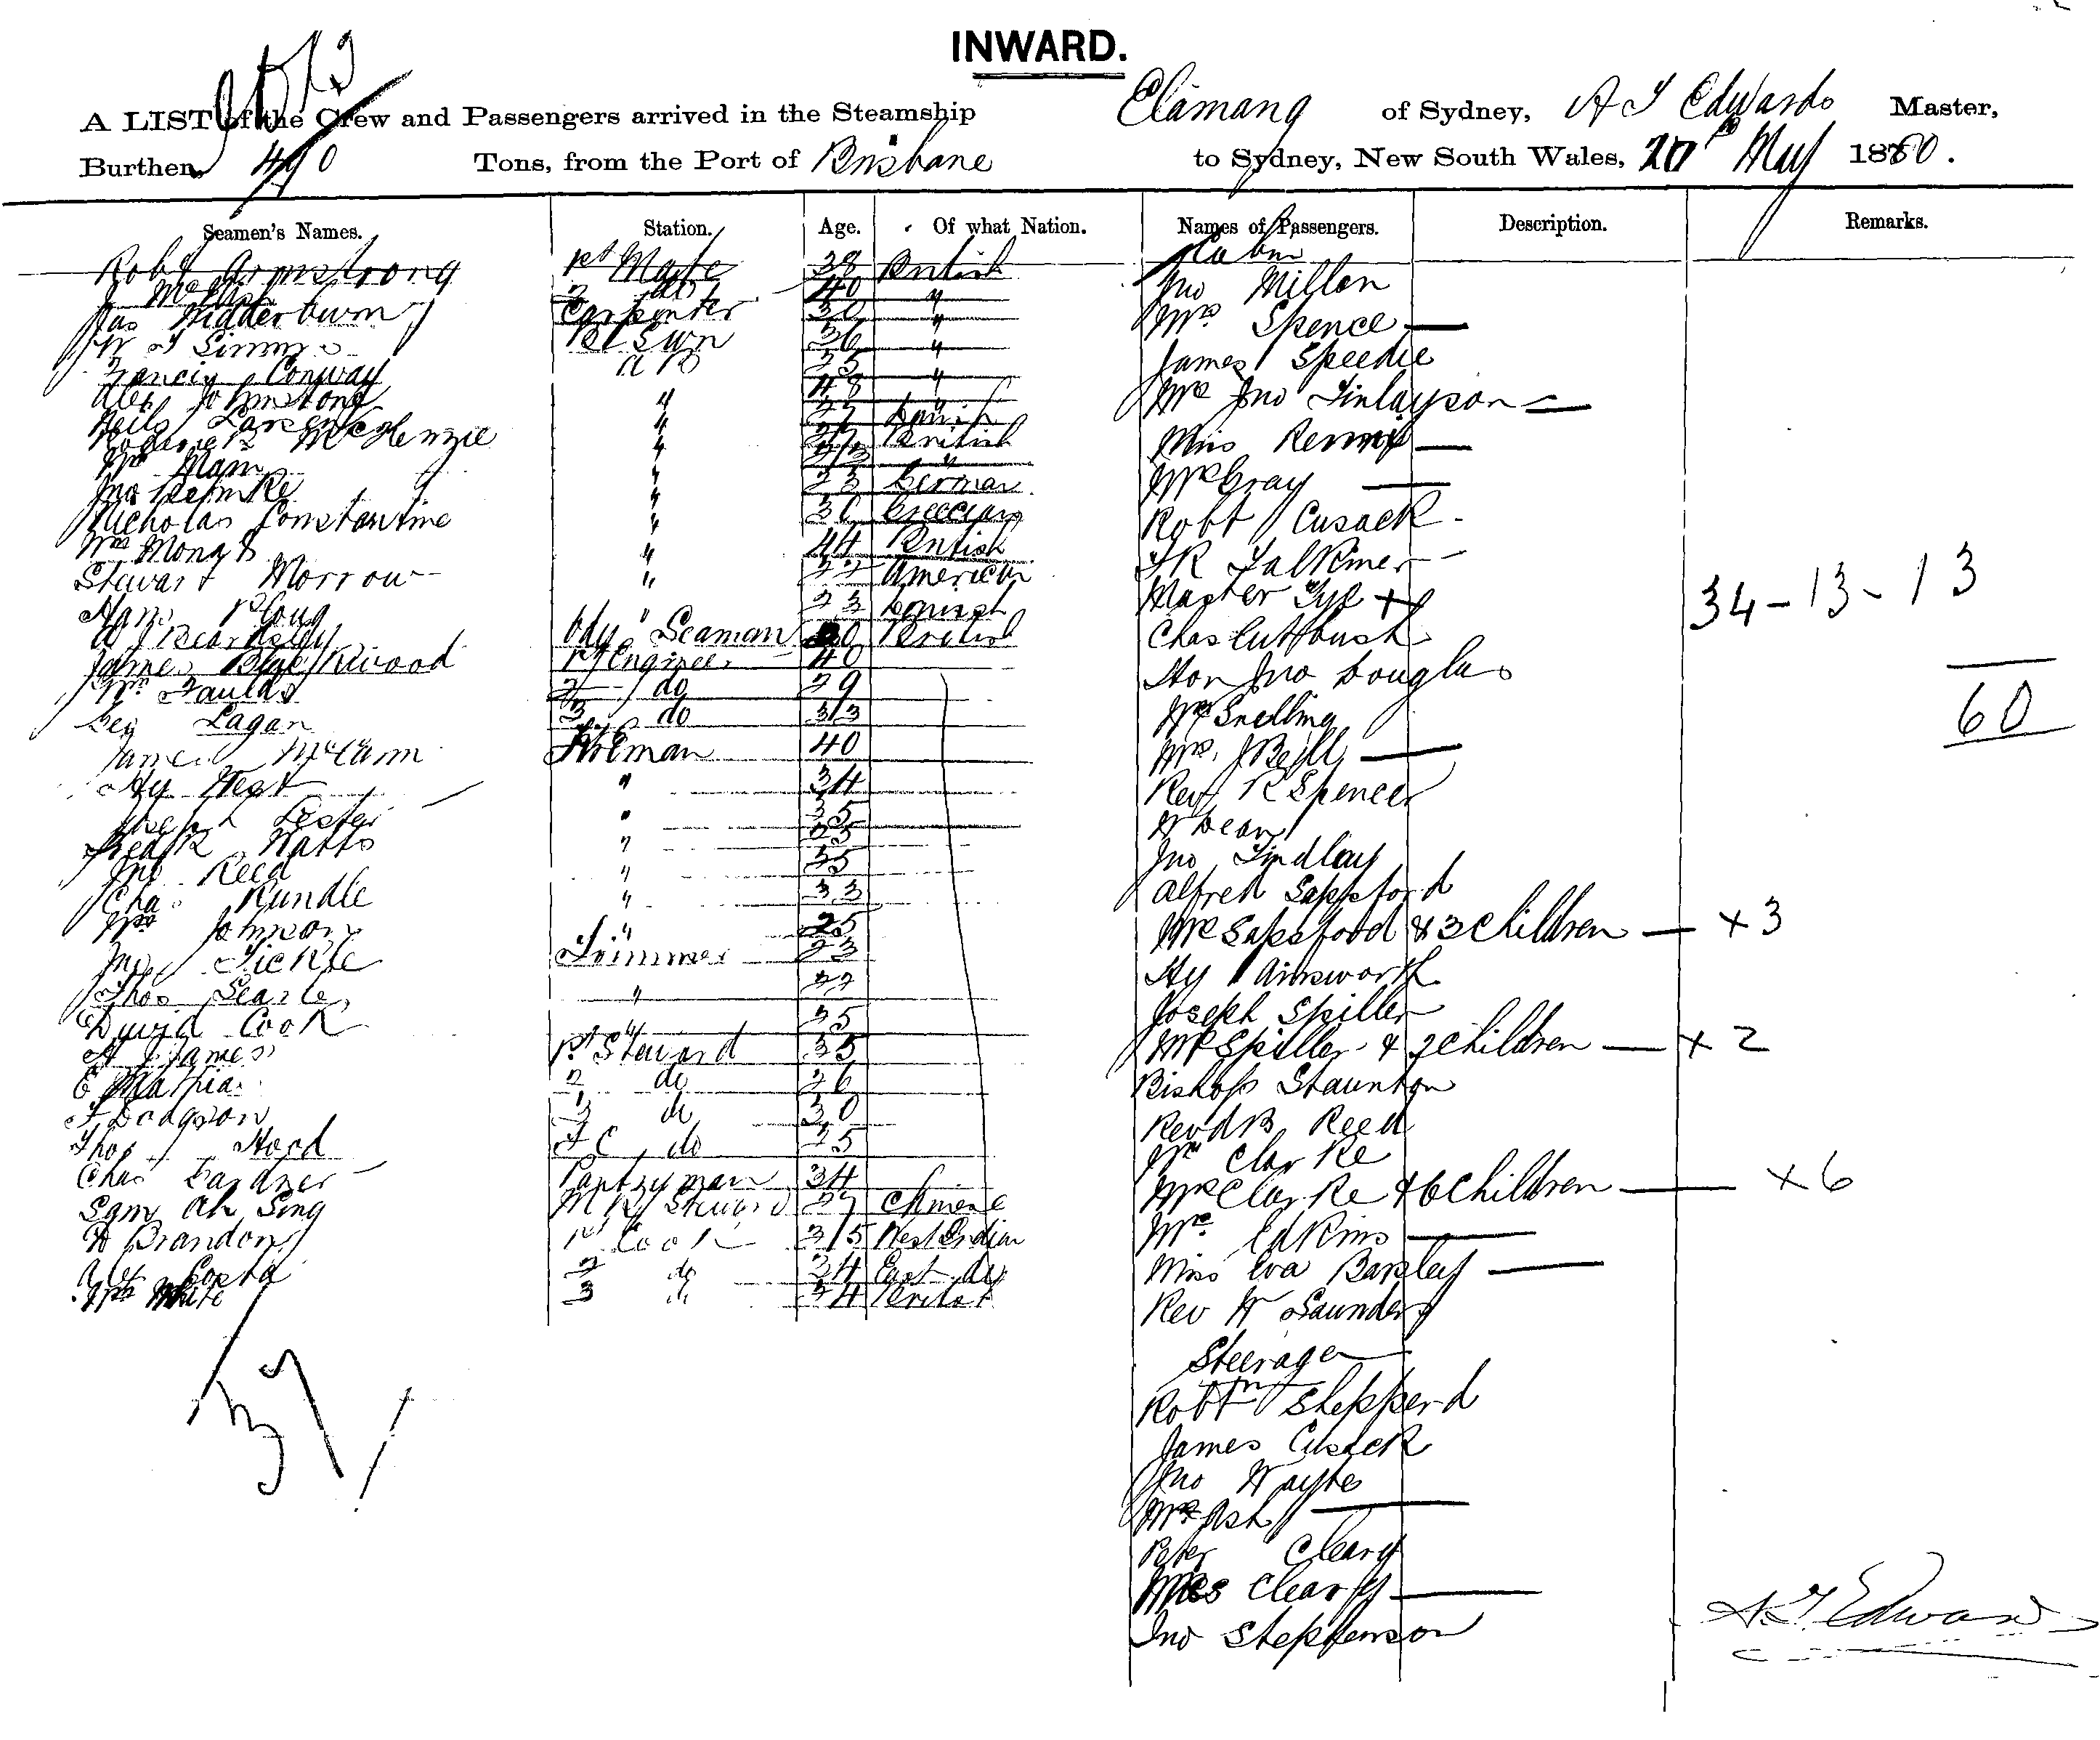 INWARD.
A LIST of the Crew and Passengers arrived in the Steamship Elamang of Sydney, A T Edwards Master,
Burthen 490 Tons, from the Port of Brisbane to Sydney, New South Wales, May 1880.
Seamen's Names. Station. Age. Of what Nation. Names of Passengers. Description. Remarks.
Cabin
Robt Armstrong 1st Mate 38 British
2 do 40 "
Carpenter 30 "
Simms 36 "
Francis Conway AB 35 "
Alex Johnstone " 48 "
Neils Larsen " Danish
McKenzie " British
Wm Mam " "
Jno " 23 German
Nicholas Constantine " Grecian
Wm " 44 British
Stewart Morrow " American
Hans " 23 Danish
W J Beardsley Ody Seaman 20 British
James Blackwood 1st Engineer 40
Wm Faulds 2 do 29
Geo Lagan 3 do 33
James McCann Fireman 40
Hy West " 34
Joseph Lester " 35
Fredk Watts " 25
Jno Reed " 35
Chas Rundle " 33
Wm Johnson " 25
Jno Tickle Trimmer 23
Thos Searle "
David Cook "
A James 1st Steward 35
E 2 do 26
F Dodgson 3 do 30
Thos Hood F C do 25
Chas Gardner Pantryman 34
Sam Ah Sing M R Steward 27 Chinese
D Brandon 1st Cook 35 West Indian
Costa 2 do 34 East do
Wm White 3 do 34 British
37
Jno Millen
Mrs Spence
James Speedie
Mrs Jno Finlayson
Miss Renny
Mrs Gray
Robt Cusack
F R Falkiner
Master Tye +
Chas Cutbush
Hon Jno Douglas
Mr Snelling
Mrs J Bell
Rev R Spencer
W Dean
Jno Findlay
Alfred Sapsford
Mrs Sapsford & 3 Children x 3
Hy Ainsworth
Joseph Spiller
Mrs Spiller & 2 Children x 2
Bishop Staunton
Revd B Reed
Mr Clarke
Mrs Clarke & 6 Children x 6
Mrs Edkins
Miss Eva Barkley
Rev W Saunders
Steerage
Robt Shepperd
James Cusack
Jno Wayte
Mrs Ash
Peter Cleary
Mrs Cleary
Jno Stephenson
34-13-13
60
A T Edwards